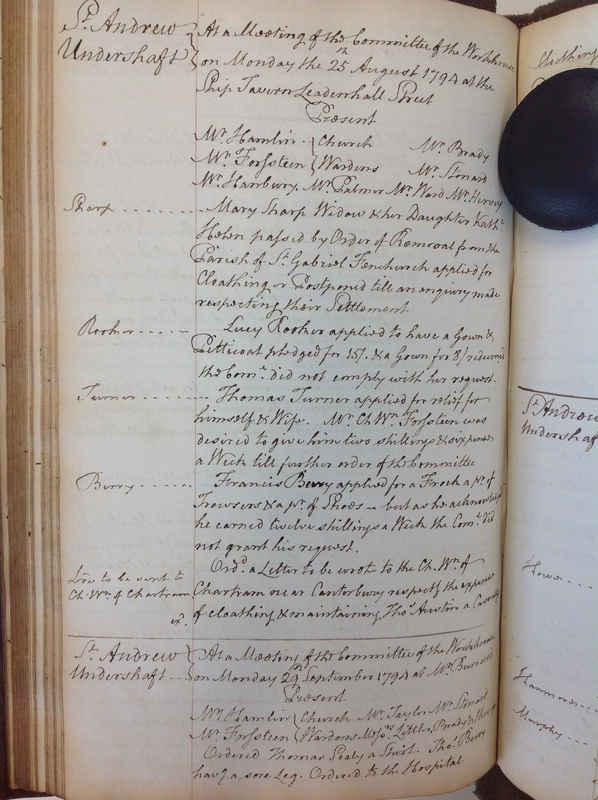 St. Andrew
Undershaft
At a Meeting of the Committee of the Workhouse
on Monday the 25th August 1794 at the
Ship Tavern Leadenhall Street
Present
Mr. Hamlin Church Mr. Brady
Mr. Forssteen Wardens Mr. Stonard
Mr. Hanbury Mr. Palmer Mr. Ward Mr. Hervey
Sharp ........ Mary Sharp Widow & her Daughter Kathe.
Helen passed by Order of Removal from the
Parish of St. Gabriel Fenchurch applied for
Cloathing, Postponed till an enquiry made
respecting their Settlement
Rooker ..... Lucy Rooker applied to have a Gown &
Petticoat pledged for 15/. & a Gown for 8/ redeemed
the Come. did not comply with her request.
Turner ....... Thomas Turner applied for relief for
himself & Wife. Mr. Ch. Wn. Forssteen was
desired to give him two shillings & six pence
a Week till further order of the Committee
Berry ...... Francis Berry applied for a Frock a pr. of
Trowsers & a pr. of Shoes – but as he acknowledged
he earned twelve shillings a Week the Come. did
not grant his request.
Lre to be sent to
Ch. Wn. of Chartram
Ord. a Letter to be wrote to the Ch. Wn. of
Chartram near Canterbury respectg. the expence
of cloathing & maintaining Thos. Austin a Casualty
St. Andrew
Undershaft
At a Meeting of the Committee of the Workhouse
on Monday 29th September 1794 at Mr.
Present
Mr. Hamlin Church Mr. Taylor Mr. Stonard
Mr. Forssteen Wardens Messrs. Little, Brady & Hervey
Ordered Thomas Sealy a Shirt. Thos. Berry
havg. a sore Leg. Ordered to the Hospital
Cloathing
St. Andrew
Undershaft
Howe
Hammond
Murphy